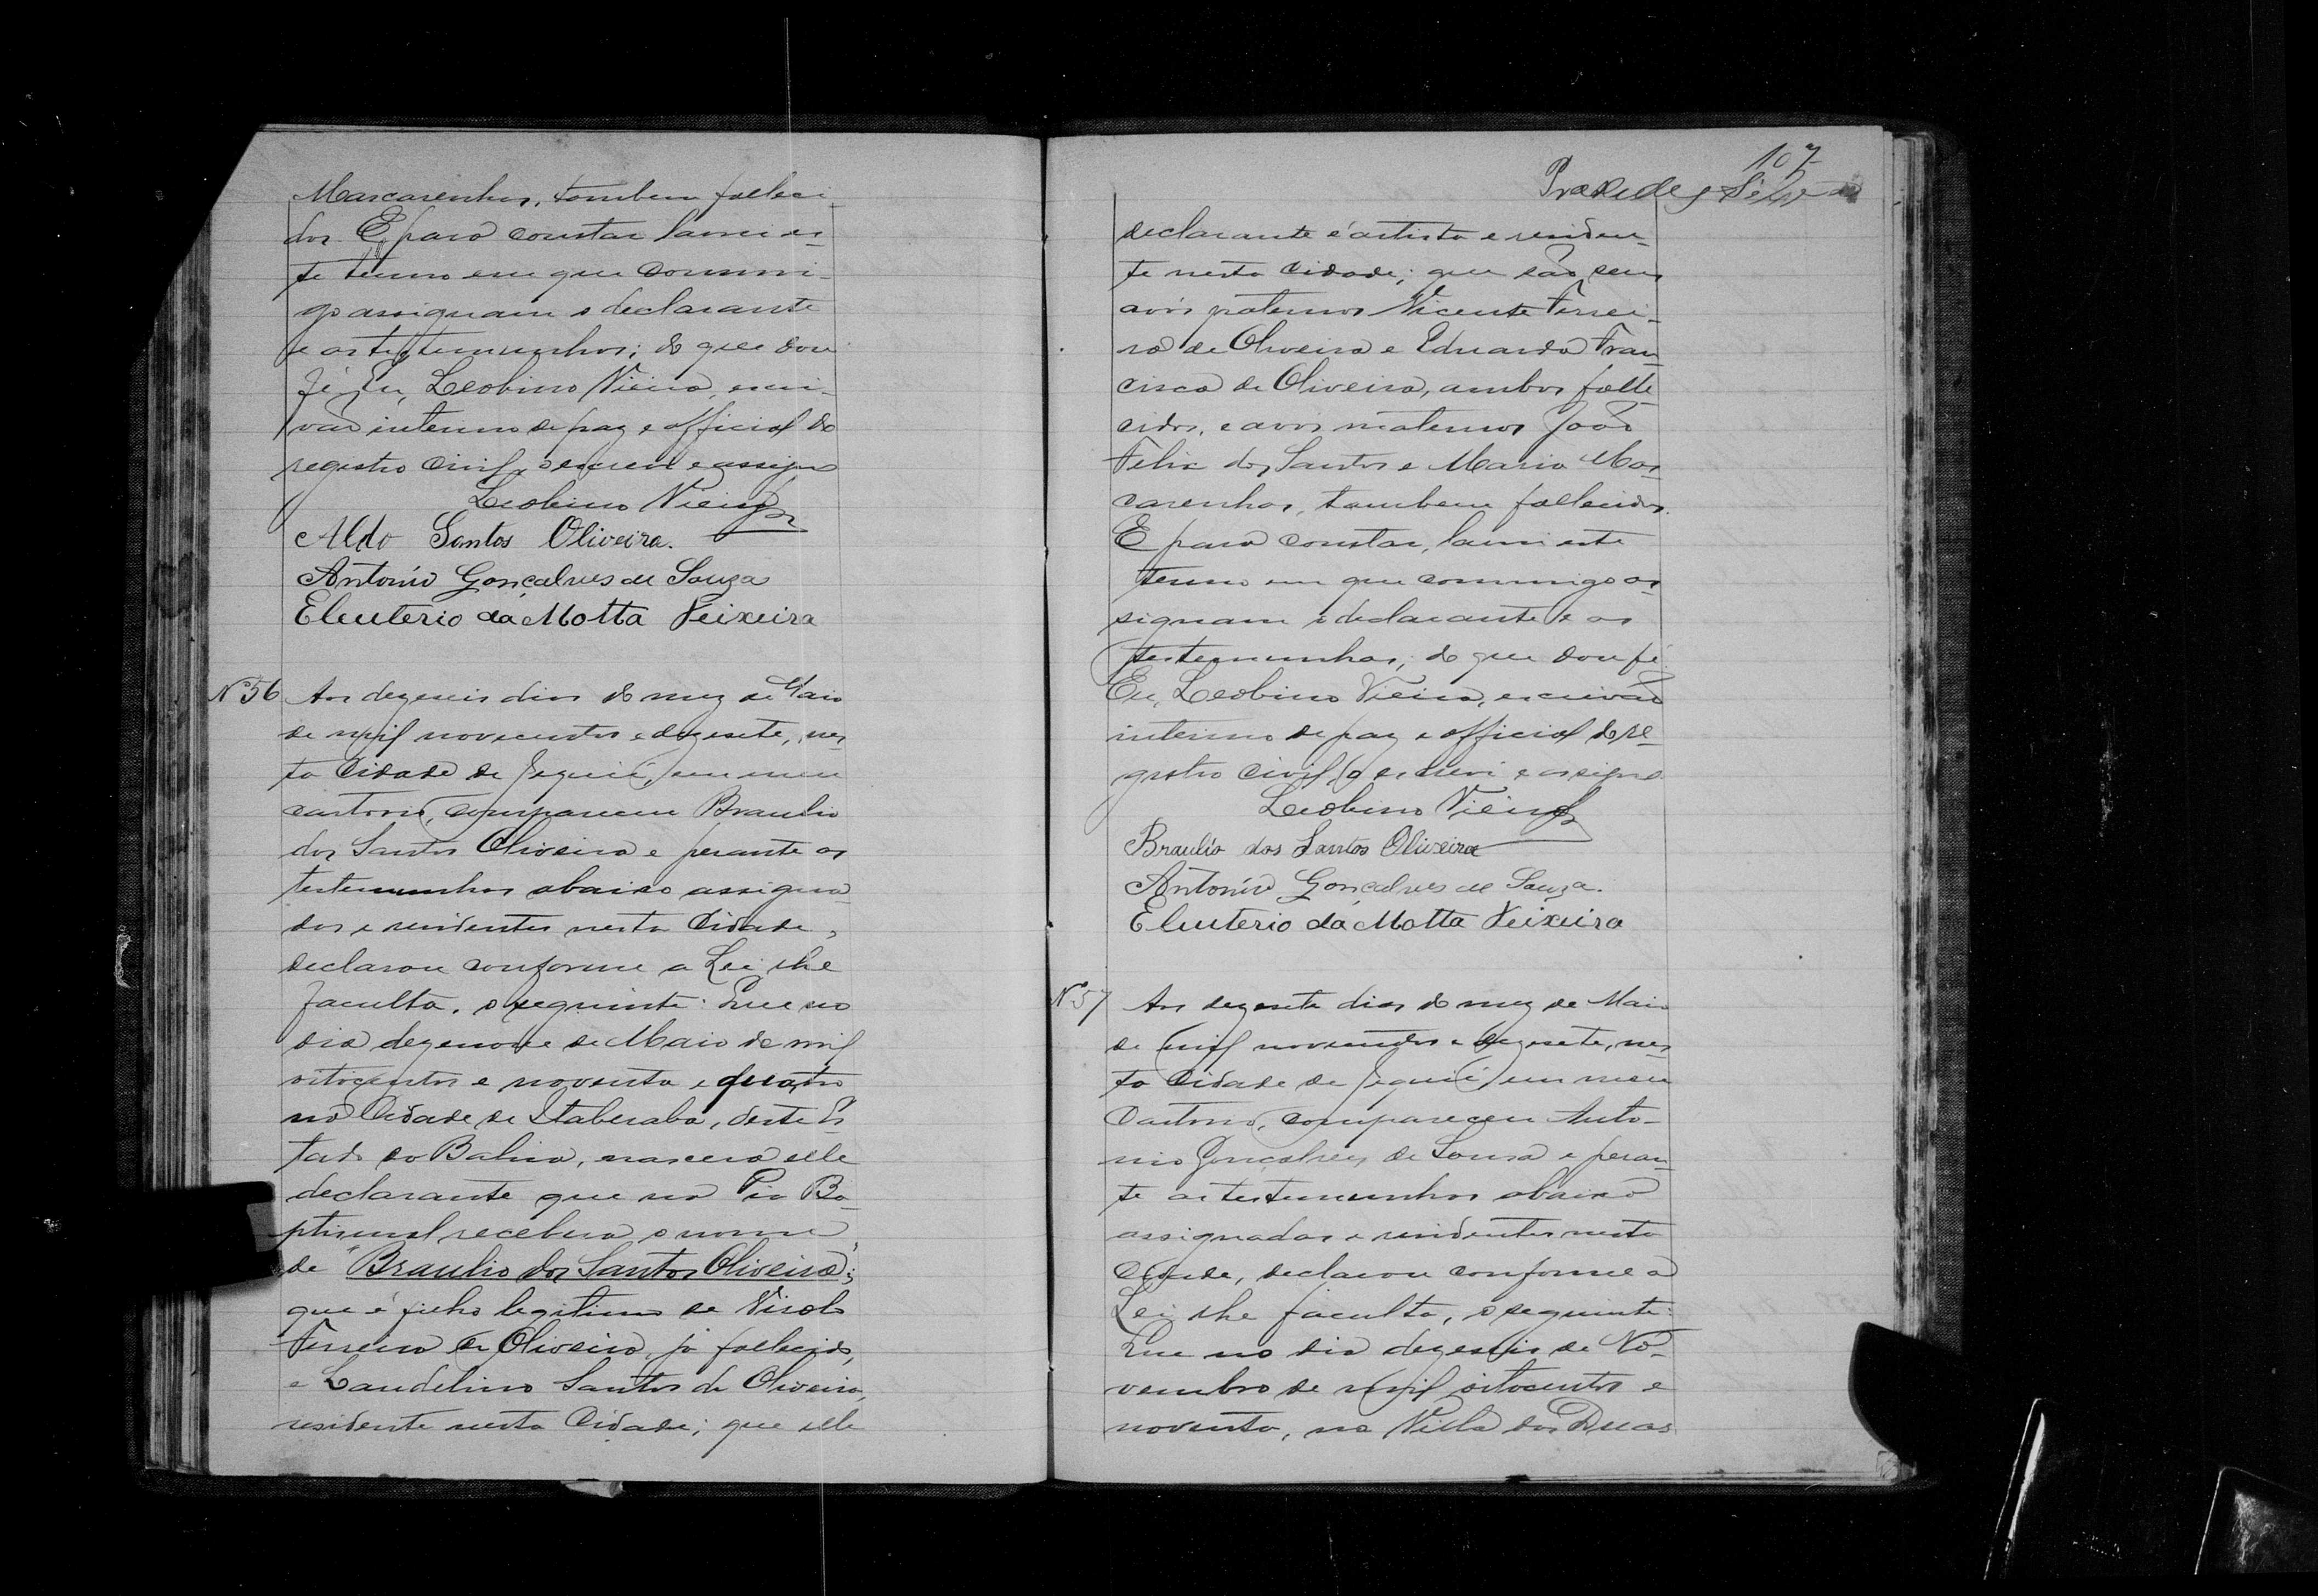 Mascarenhas, tambem falleci-
dos. E para constar lavrei es-
te termo em que commi-
go assignam o declarante
e as testemunhas; do que dou
fé. Eu, Leobino Vieira, escri-
vão interino de paz e official do
registro civil, o escrevi e assigno
Leobino Vieira
Aldo Santos Oliveira.
Antonio Gonçalves de Souza
Eleuterio da Motta Teixeira
Nº 56 Aos dezeseis dias do mez de Maio
de mil novecentos e dezesete, nes-
ta Cidade de Jequié, em meu
cartorio, compareceu Braulio
dos Santos Oliveira e perante as
testemunhas abaixo assigna-
das e residentes nesta Cidade,
declarou conforme a Lei lhe
faculta, o seguinte: Que no
dia dezenove de Maio de mil
oitocentos e noventa e quatro
na Cidade de Itaberaba, deste Es-
tado da Bahia, nascera elle
declarante que na Pia Ba-
ptismal recebera o nome
de "Braulio dos Santos Oliveira";
que é filho legitimo de
Ferreira de Oliveira, já fallecido,
e Laudelina Santos de Oliveira,
residente nesta Cidade; que elle
107
Praxedes Silva
declarante é artista e residen-
te nesta Cidade; que são seus
avós paternos Vicente Ferrei-
ra de Oliveira e Eduarda Fran-
cisca de Oliveira, ambos falle-
cidos, e avós maternos João
Felix dos Santos e Maria Mas-
carenhas, tambem fallecidos.
E para constar, lavrei este
termo em que commigo as-
signam o declarante e as
testemunhas; do que dou fé.
Eu, Leobino Vieira, escrivão
interino de paz e official do re-
gistro civil, o escrevi e assigno
Leobino Vieira
Braulio dos Santos Oliveira
Antonio Gonçalves de Souza.
Eleuterio da Motta Teixeira
Nº 57 Aos dezesete dias do mez de Maio
de mil novecentos e dezesete, nes-
ta Cidade de Jequié, em meu
Cartorio, compareceu Anto-
nio Gonçalves de Sousa e peran-
te as testemunhas abaixo
assignadas e residentes nesta
Cidade, declarou conforme a
Lei lhe faculta, o seguinte:
Que no dia dezeseis de No-
vembro de mil oitocentos e
noventa, na Villa das Duas